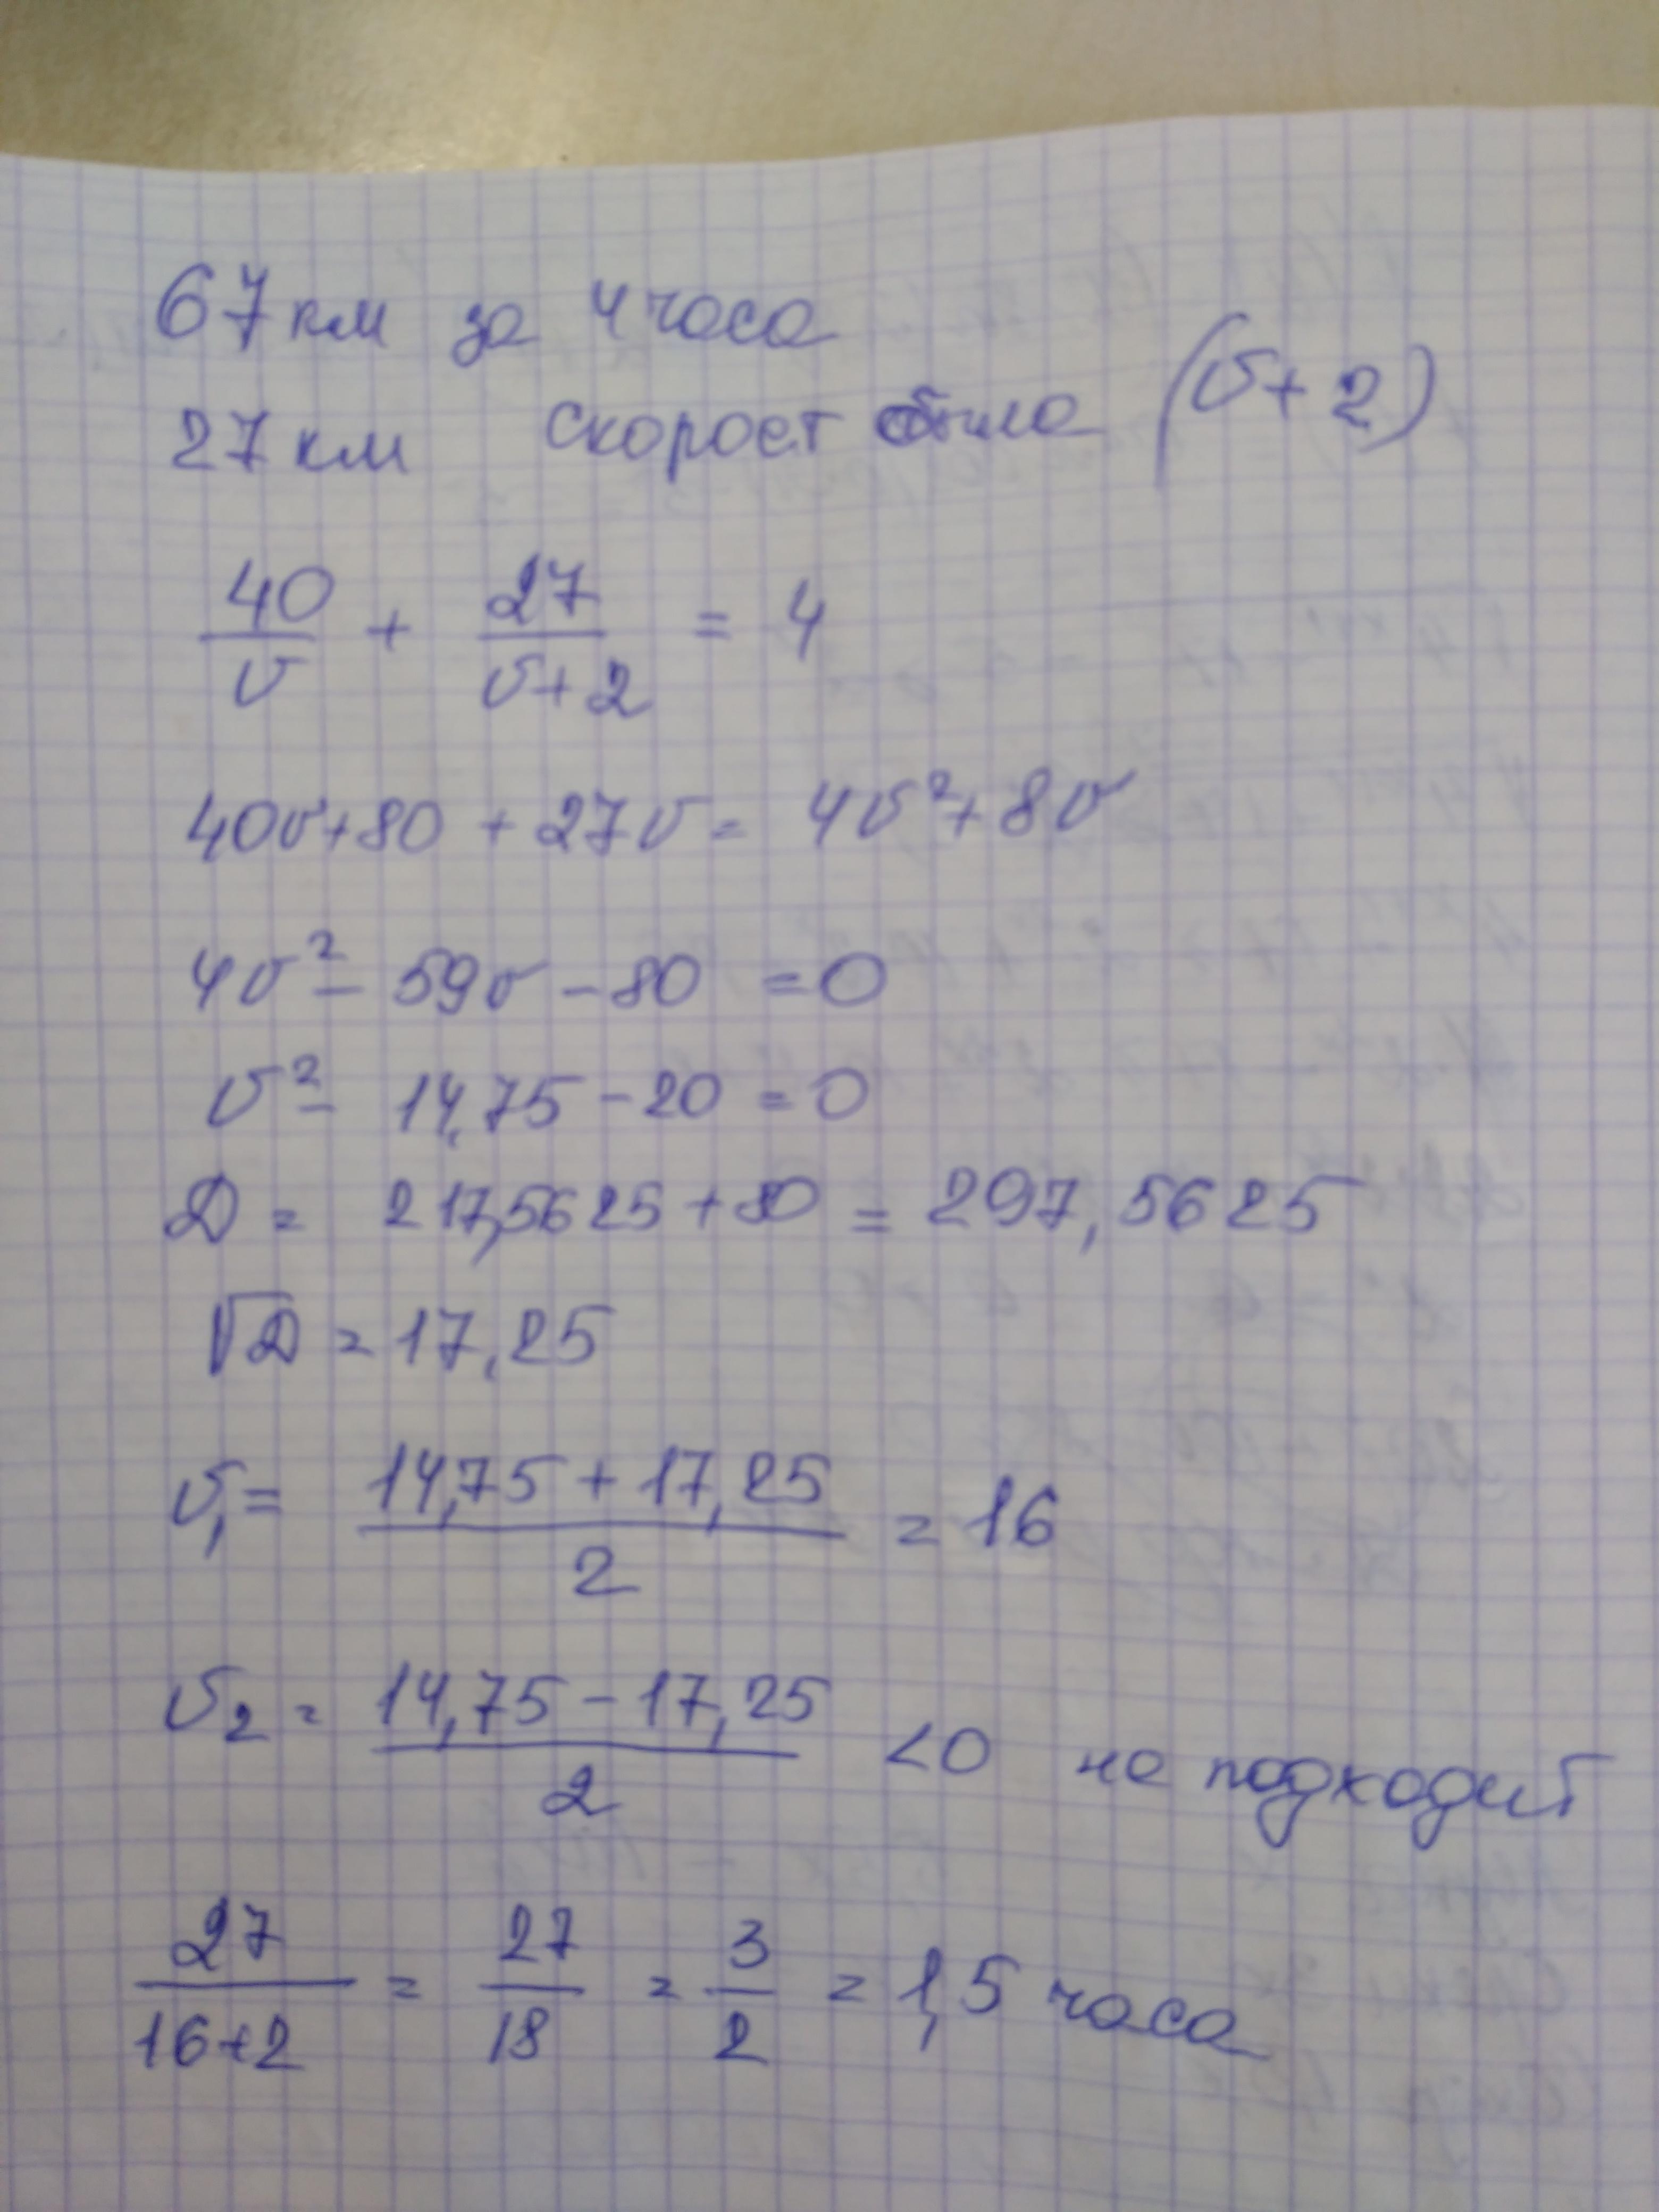 67 км за 4 часа
27 км скорост была (v+2)
40/v + 27/(v+2) = 4
40v+80 + 27v = 4v²+8v
4v² - 59v - 80 = 0
v² - 14,75 - 20 = 0
D = 217,5625 + 80 = 297,5625
√D = 17,25
v₁ = (14,75 + 17,25)/2 = 16
v₂ = (14,75 - 17,25)/2 <0 не подходит
27/(16+2) = 27/18 = 3/2 = 1,5 часа